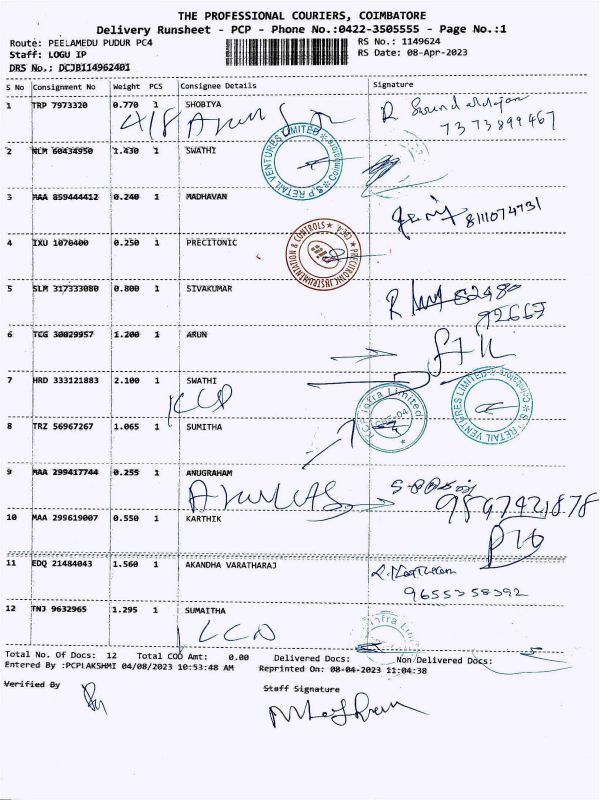 THE PROFESSIONAL COURIERS, COIMBATORE
Delivery Runsheet - PCP - Phone No.:0422-3505555 - Page No.:1
Route: PEELAMEDU PUDUR PC4 RS No.: 1149624
Staff: LOGU IP RS Date: 08-Apr-2023
DRS No.: DCJB114962401
S No Consignment No Weight PCS Consignee Details Signature
1 TRP 7973320 0.770 1 SHOBIYA
7373899467
2 NLM 60434950 1.430 1 SWATHI
S P RETAIL VENTURES LIMITED * Coimbatore *
3 MAA 859444412 0.240 1 MADHAVAN
8111074731
4 IXU 1070400 0.250 1 PRECITONIC
PRECITRONIC INSTRUMENTATION & CONTROLS
5 SLM 317333080 0.800 1 SIVAKUMAR
82480
92667
6 TCG 30029957 1.200 1 ARUN
7 HRD 333121883 2.100 1 SWATHI
KCP
KCP Infra Limited
S.P RETAIL VENTURES LIMITED * Coimbatore *
8 TRZ 56967267 1.065 1 SUMITHA
9 MAA 299417744 0.255 1 ANUGRAHAM
10 MAA 299619007 0.550 1 KARTHIK
11 EDQ 21484043 1.560 1 AKANDHA VARATHARAJ
9655358392
12 TNJ 9632965 1.295 1 SUMAITHA
KCP
Infra Limited
Total No. Of Docs: 12 Total COD Amt: 0.00 Delivered Docs: Non Delivered Docs:
Entered By :PCPLAKSHMI 04/08/2023 10:53:48 AM Reprinted On: 08-04-2023 11:04:38
Verified By Staff Signature